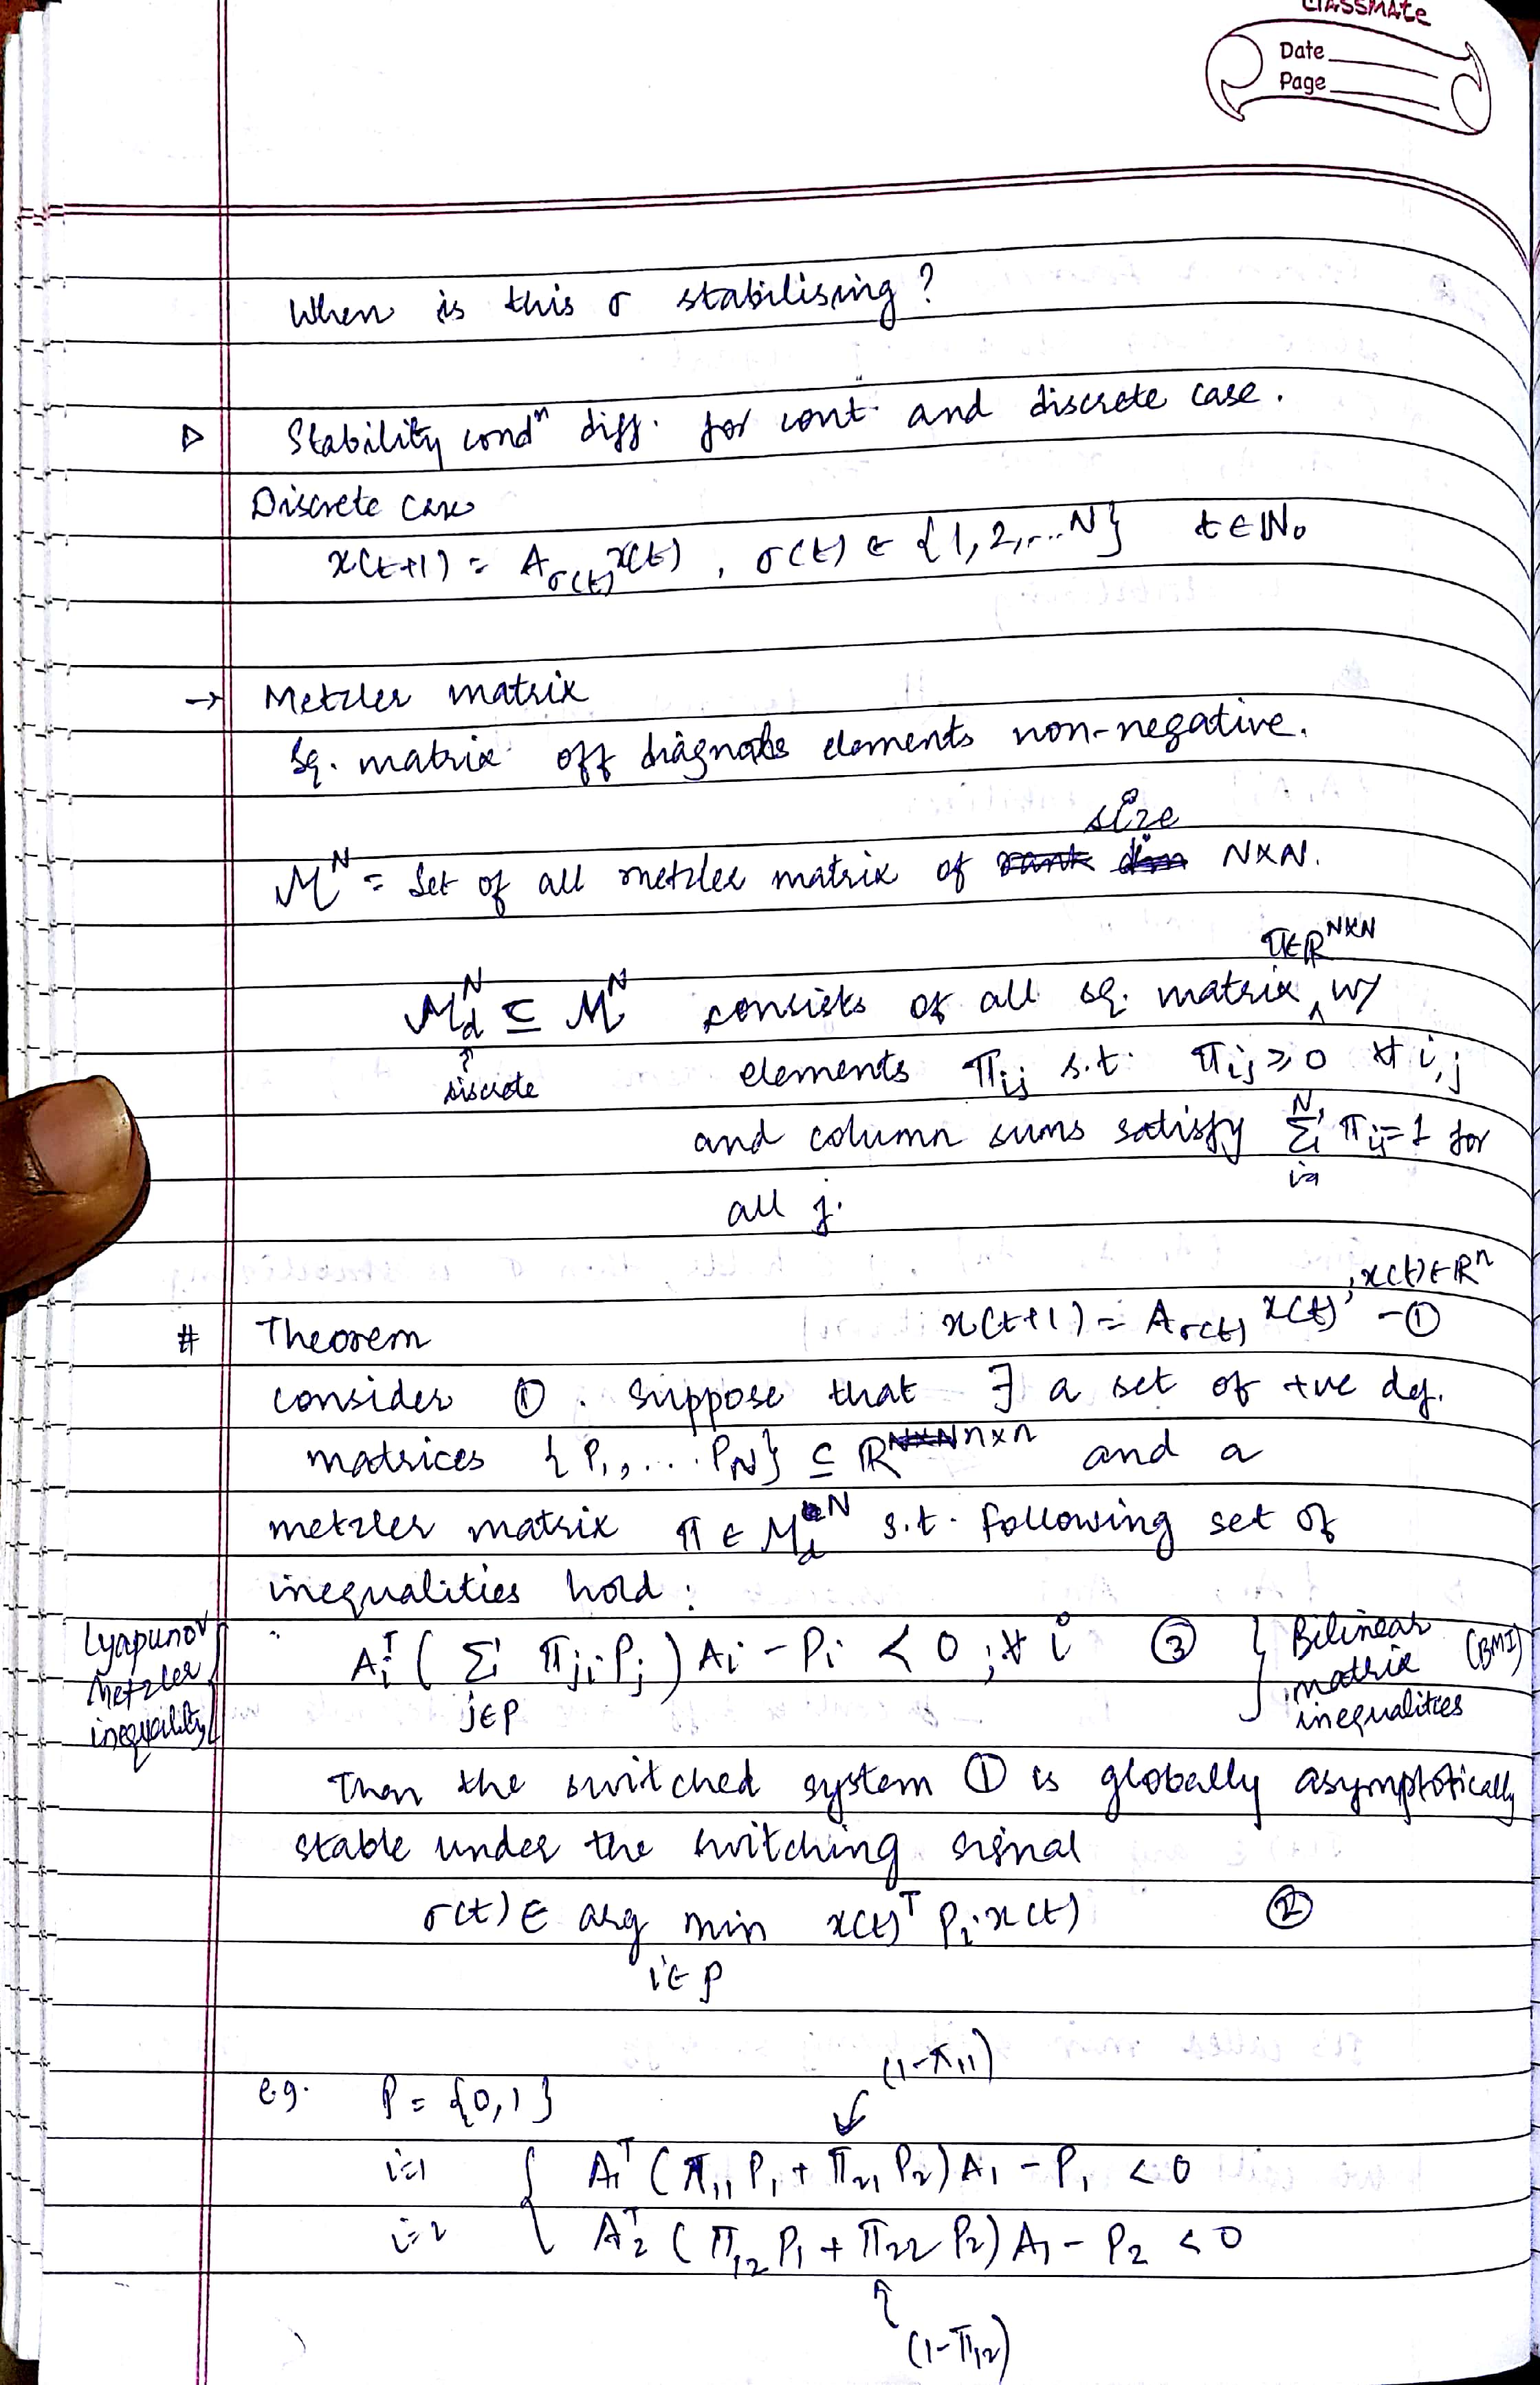 classmate
Date
Page
When is this σ stabilising?
▷ Stability condⁿ diff. for cont. and discrete case.
Discrete case
x(t+1) = A_σ(t) x(t), σ(t) ∈ {1,2,...N} t∈ℕ₀
→ Metzler matrix
Sq. matrix off diagnals elements non-negative.
size
M^N = Set of all metzler matrix of N×N.
π∈ℝ^{N×N}
M_d^N ⊆ M^N consists of all sq. matrix ^ w/
discrete elements π_ij s.t. π_ij ≥ 0 ∀ i,j
and column sums satisfy Σ_{i=1}^{N} π_ij = 1 for
all j.
# Theorem x(t+1) = A_σ(t) x(t), x(t)∈ℝⁿ -①
consider ①. Suppose that ∃ a set of +ve def.
matrices {P₁,...P_N} ⊆ ℝ^{n×n} and a
metzler matrix π ∈ M_d^N s.t. following set of
inequalities hold:
Lyapunov Metzler inequality } A_i^T ( Σ_{j∈P} π_ji P_j ) A_i - P_i < 0 ; ∀ i ③ } Bilinear matrix inequalities (BMI)
Then the switched system ① is globally asymptotically
stable under the switching signal
σ(t) ∈ arg min_{i∈P} x(t)^T P_i x(t) ②
(1-π₁₁)
e.g. P = {0,1}
i=1 { A₁^T (π₁₁ P₁ + π₂₁ P₂) A₁ - P₁ < 0
i=2 A₂^T (π₁₂ P₁ + π₂₂ P₂) A₁ - P₂ < 0
(1-π₁₂)